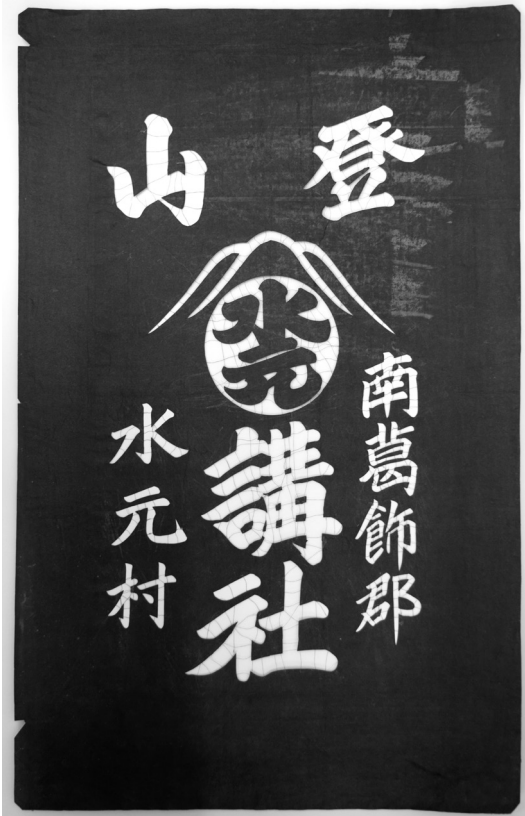 登山
水元
講社
南葛飾郡
水元村